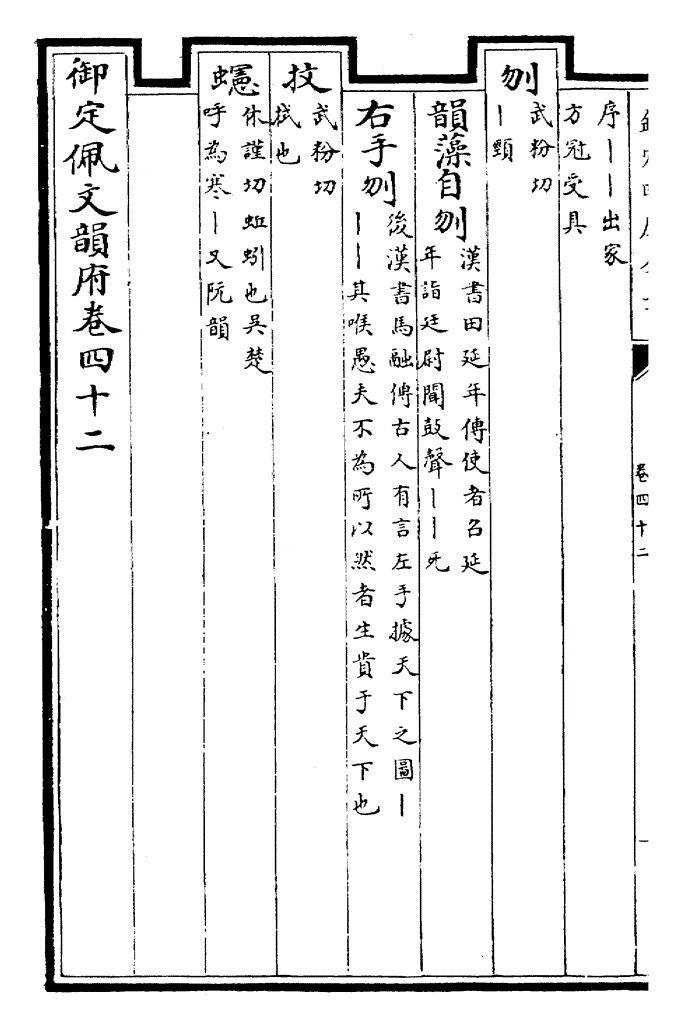 卷四十二
序丨丨出家
方冠受具
刎
武粉切
丨頸
韻藻自刎
漢書田延年傳使者召延
年詣廷尉聞鼓聲丨丨死
右手刎
後漢書馬融傳古人有言左手據天下之圖丨
丨丨其喉愚夫不為所以然者生貴于天下也
抆
武粉切
拭也
蟪
休謹切蚯蚓也吳楚
呼為寒丨又阮韻
御定佩文韻府卷四十二